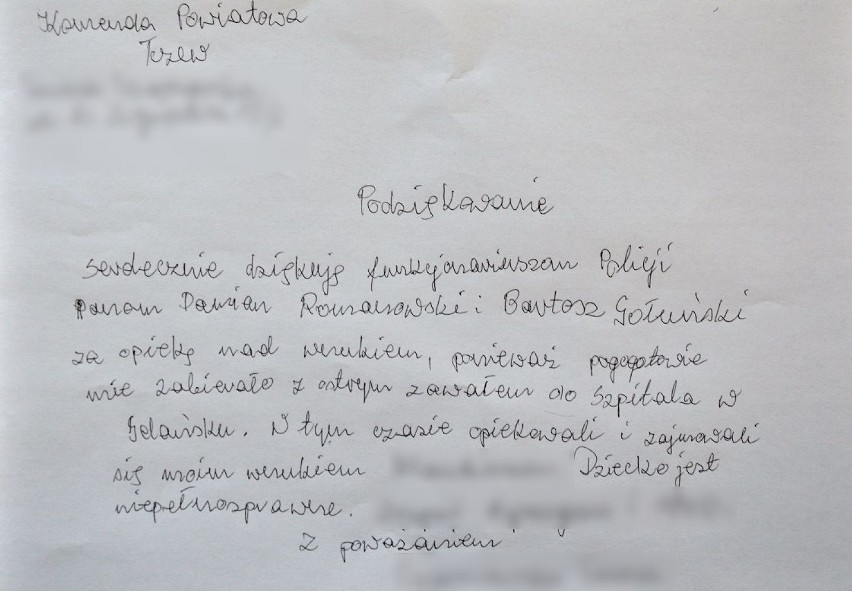 Komenda Powiatowa
Tczew
Podziękowanie
serdecznie dziękuję funkcjonariuszom Policji
panom Damian Romanowski i Bartosz Gołuński
za opiekę nad wnukiem, ponieważ pogogotowie
mnie zabierało z ostrym zawałem do szpitala w
Gdańsku. W tym czasie opiekowali i zajmowali
się moim wnukiem Dziecko jest
niepełnosprawne.
Z poważaniem